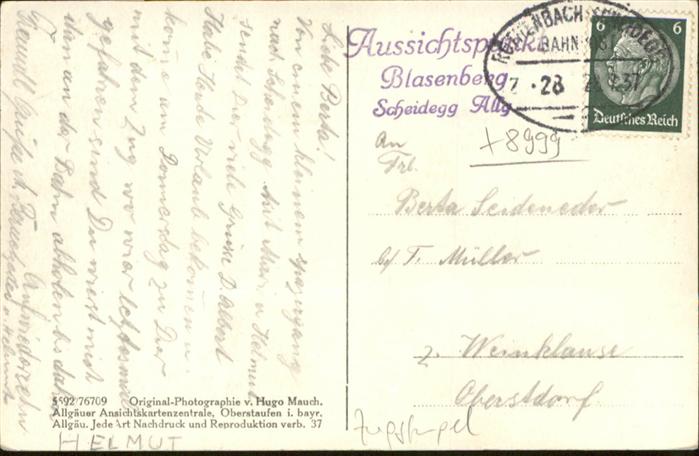 Liebe Berta!
Von einem kleinem spaziergang
nach Scheidegg mit Mari u. Helmut
sendet Dir viele Grüße D. Albert
Habe Heute Urlaub bekommen u.
kome am Donnerstag zu Dir
mit dem Zug wo wir letztesmal
gefahren sind Du wirst mich
dan an der Bahn abholen
Aufwiedersehn
Aussichtspunkt
Blasenberg
Scheidegg Allg
RÖTHENBACH-SCHEIDEGG
BAHN
28
37
6 6
Deutsches Reich
+8999
An
Frl.
Berta Seideneder
b/ F. Müller
z. Weinklause
Oberstdorf
Zugstempel
5592/76709 Original-Photographie v. Hugo Mauch.
Allgäuer Ansichtskartenzentrale, Oberstaufen i. bayr.
Allgäu. Jede Art Nachdruck und Reproduktion verb. 37
HELMUT